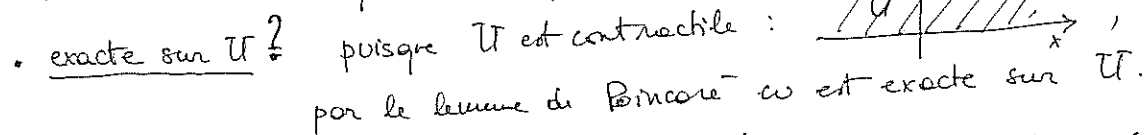 • exacte sur U ? puisque U est contractile : U x ,
par le lemme de Poincaré ω est exacte sur U.